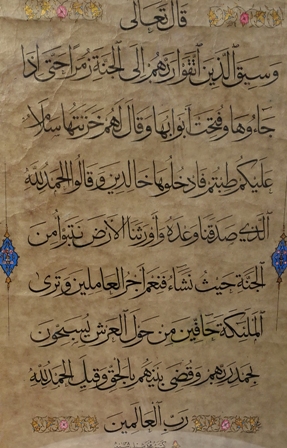 قال تعالى
وسيق الذين اتقوا ربهم إلى الجنة زمرا حتى إذا
جاءوها وفتحت أبوابها وقال لهم خزنتها سلام
عليكم طبتم فادخلوها خالدين وقالوا الحمد لله
الذي صدقنا وعده وأورثنا الأرض نتبوأ من
الجنة حيث نشاء فنعم أجر العاملين وترى
الملئكة حافين من حول العرش يسبحون
بحمد ربهم وقضي بينهم بالحق وقيل الحمد لله
رب العالمين